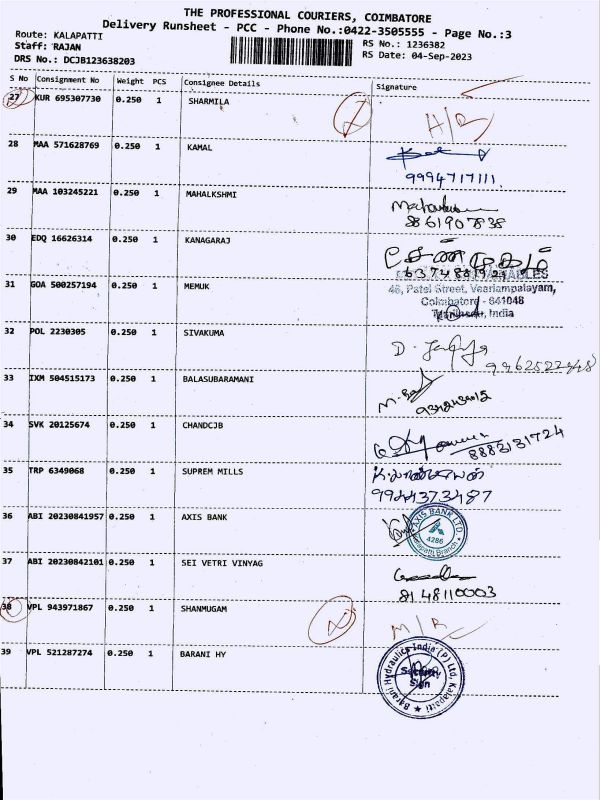 THE PROFESSIONAL COURIERS, COIMBATORE
Delivery Runsheet - PCC - Phone No.:0422-3505555 - Page No.:3
Route: KALAPATTI
Staff: RAJAN
DRS No.: DCJB123638203
RS No.: 1236382
RS Date: 04-Sep-2023
S No Consignment No Weight PCS Consignee Details Signature
27 KUR 695307730 0.250 1 SHARMILA
28 MAA 571628769 0.250 1 KAMAL
9994717111
29 MAA 103245221 0.250 1 MAHALKSHMI
8861907838
30 EDQ 16626314 0.250 1 KANAGARAJ
31 GOA 500257194 0.250 1 MEMUK
46, Patel Street, Veeriampalayam,
Coimbatore - 641048
Tamilnadu, India
32 POL 2230305 0.250 1 SIVAKUMA
33 IXM 504515173 0.250 1 BALASUBARAMANI
34 SVK 20125674 0.250 1 CHANDCJB
8883131724
35 TRP 6349068 0.250 1 SUPREM MILLS
9944373487
36 ABI 20230841957 0.250 1 AXIS BANK
AXIS BANK LTD.
4286
Kalapatti Branch
37 ABI 20230842101 0.250 1 SEI VETRI VINYAG
8148110003
38 VPL 943971867 0.250 1 SHANMUGAM
39 VPL 521287274 0.250 1 BARANI HY
Barani Hydraulics India (P) Ltd, Kalapatti
Security
Sign